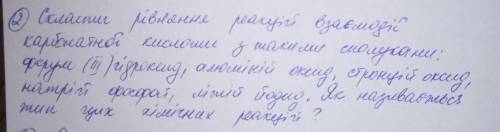 ② Скласти рівняння реакцій взаємодії
карбонатної кислоти з такими сполуками:
ферум (III) гідроксид, алюміній оксид, стронцій оксид,
натрій фосфат, літій йодид. Як називається
тип цих хімічних реакцій?